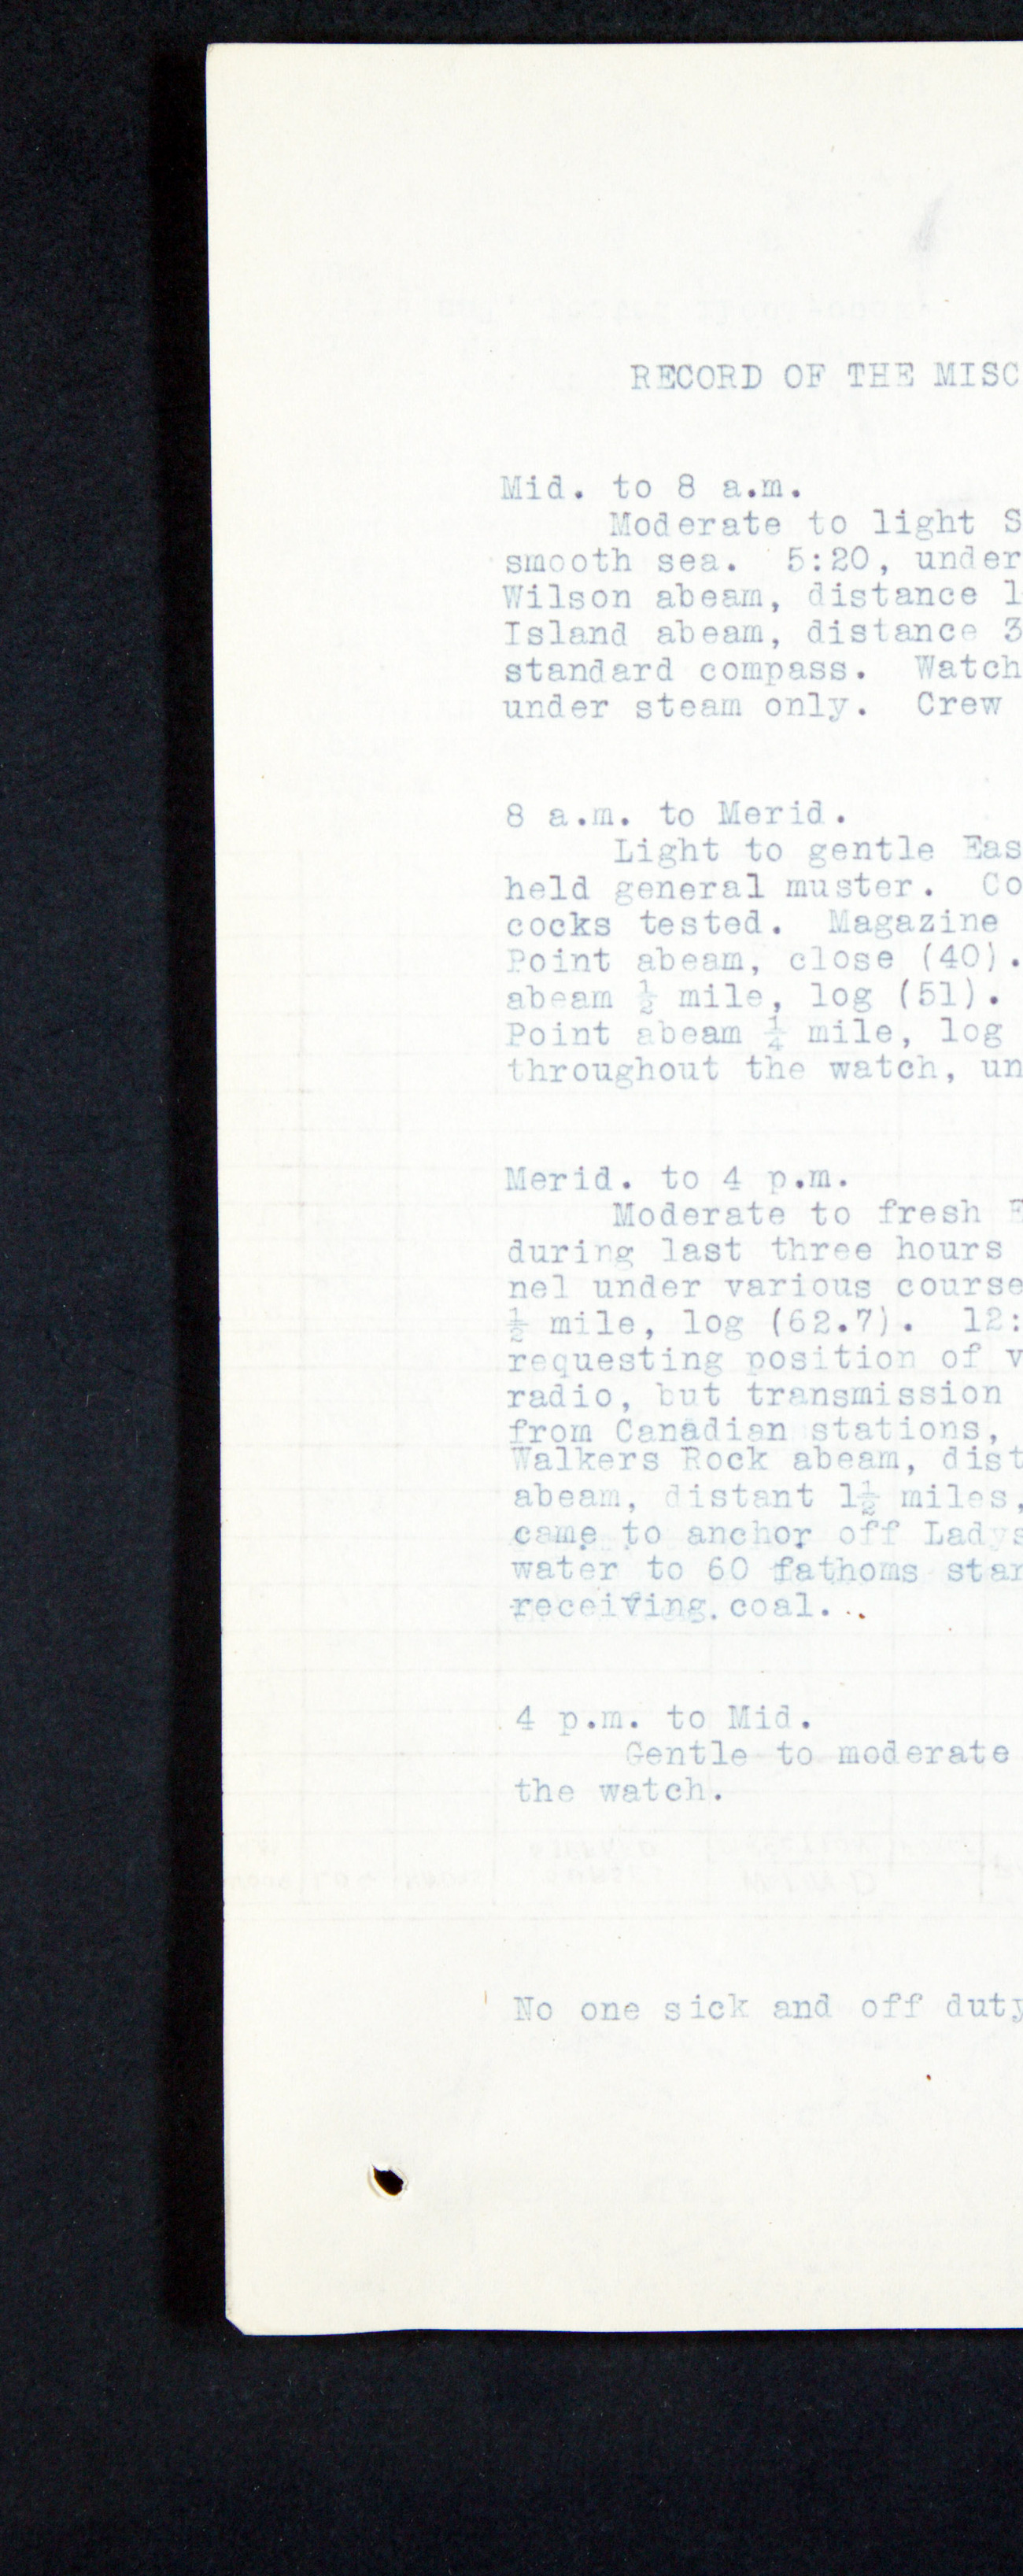 RECORD OF THE MISC
Mid. to 8 a.m.
Moderate to light S
smooth sea. 5:20, under
Wilson abeam, distance 1
Island abeam, distance 3
standard compass. Watch
under steam only. Crew
8 a.m. to Merid.
Light to gentle Eas
held general muster. Co
cocks tested. Magazine
Point abeam, close (40).
abeam ½ mile, log (51).
Point abeam ¼ mile, log
throughout the watch, un
Merid. to 4 p.m.
Moderate to fresh E
during last three hours
nel under various course
½ mile, log (62.7). 12:
requesting position of v
radio, but transmission
from Canadian stations,
Walkers Rock abeam, dist
abeam, distant 1½ miles,
came to anchor off Ladys
water to 60 fathoms star
receiving coal.
4 p.m. to Mid.
Gentle to moderate
the watch.
No one sick and off duty